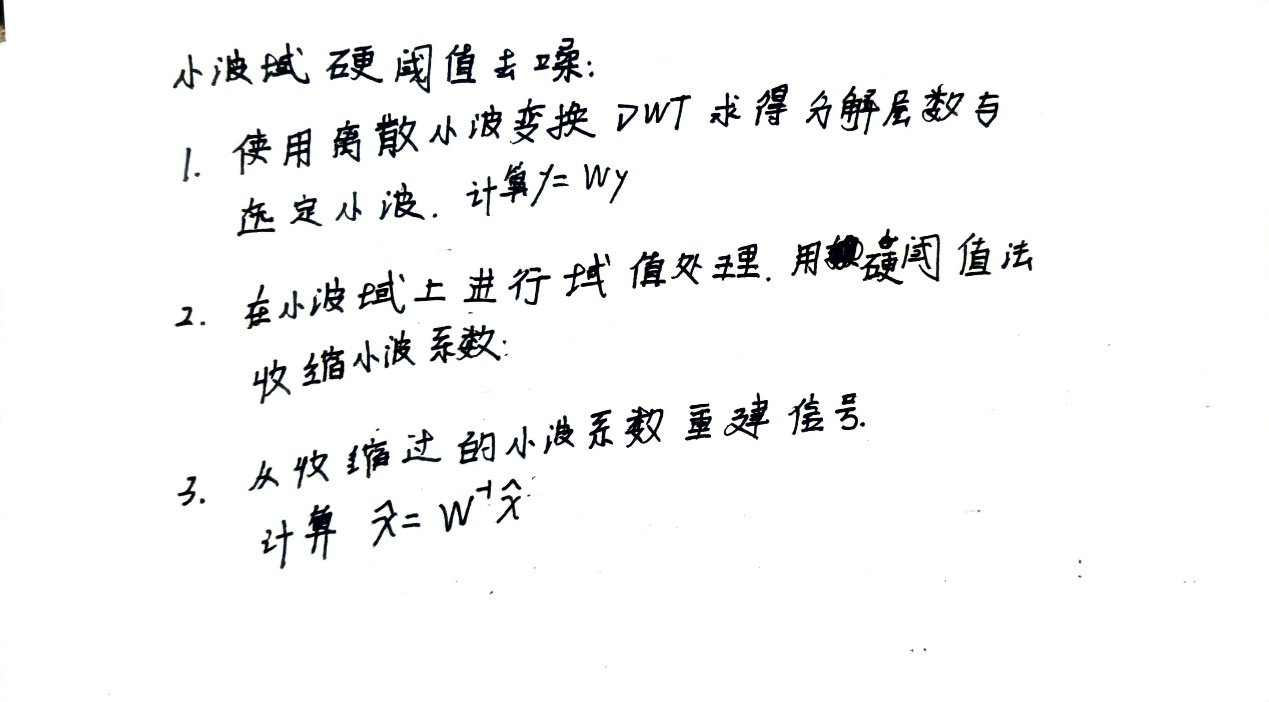 小波域硬阈值去噪:
1. 使用离散小波变换DWT求得分解层数与
选定小波. 计算y=Wy
2. 在小波域上进行域值处理. 用硬阈值法
收缩小波系数:
3. 从收缩过的小波系数重建信号.
计算 x̂=W⁻¹x̂